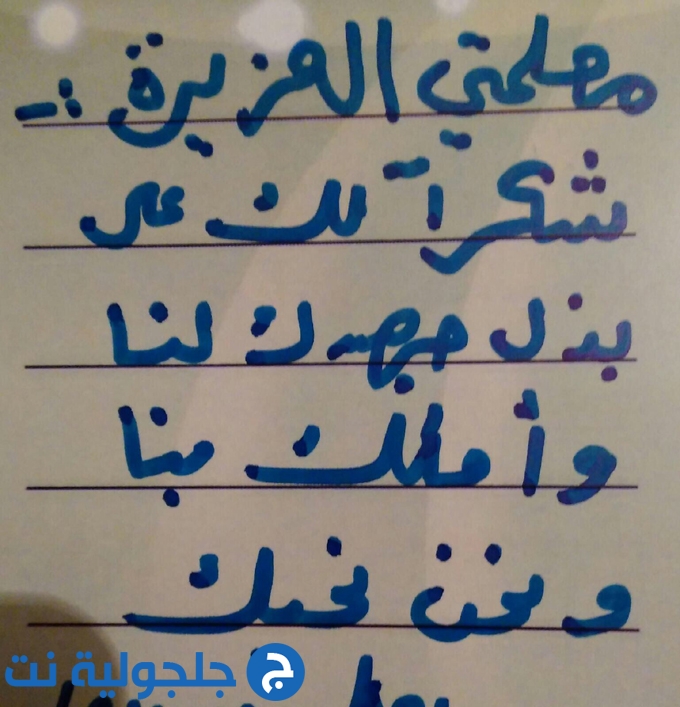 معلمتي العزيزة :-
شكراً لك على
بذل جهدك لنا
وأملك بنا
ونحن نحبك
جلجولية نت